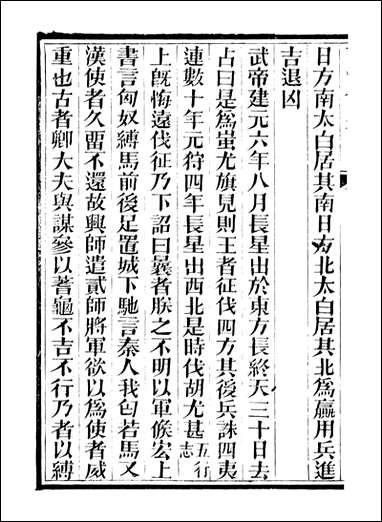 日方南太白居其南日方北太白居其北為贏用兵進
吉退凶
武帝建元六年八月長星出於東方長終天三十日去
占曰是為蚩尤旗見則王者征伐四方其後兵誅四夷
連數十年元狩四年長星出西北是時伐胡尤甚五行志
上既悔遠伐征乃下詔曰曩者朕之不明以軍候宏上
書言匈奴縛馬前後足置城下馳言秦人我匄若馬又
漢使者久畱不還故興師遣貳師將軍欲以為使者威
重也古者卿大夫與謀參以蓍龜不吉不行乃者以縛